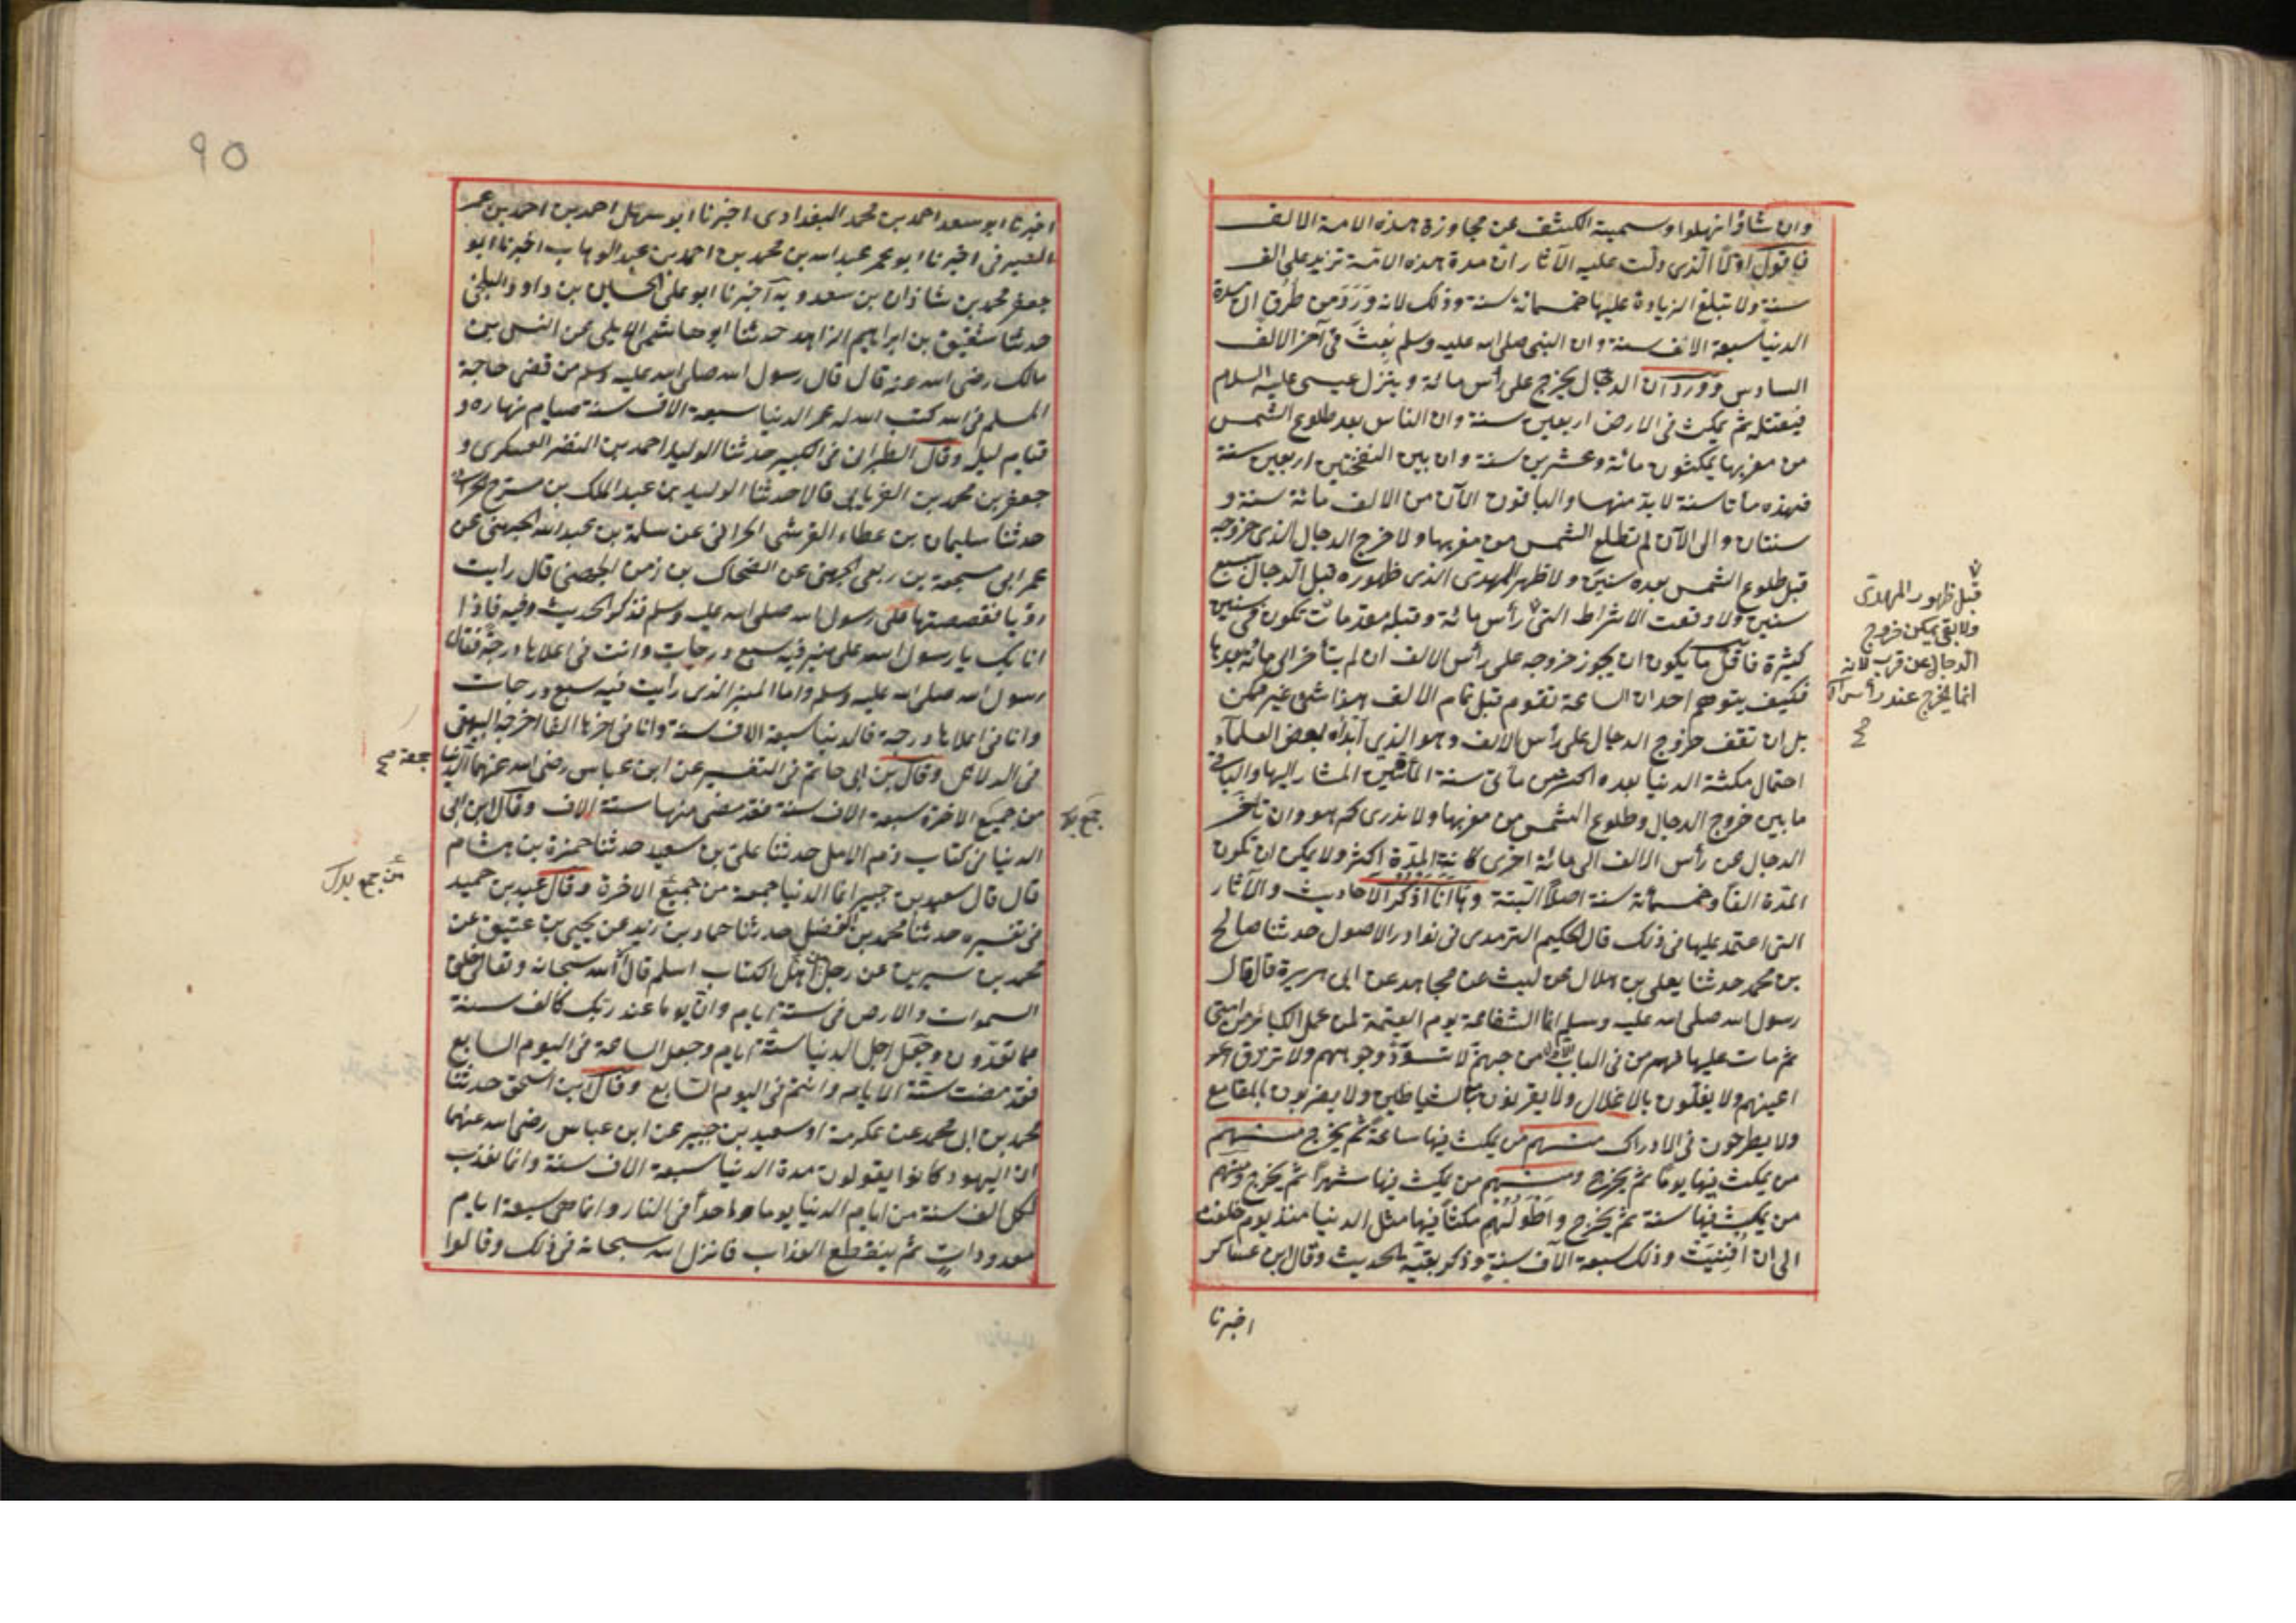 وان شاؤا نهلوا وسميته الكشف عن مجاوزة هذه الامة الالف
فاقول اولا الذى دلت عليه الآثار ان مدة هذه الامة تزيد على الف
سنة ولا تبلغ الزيادة عليها خمسمائة سنة وذلك لانه ورد من طرق ان مدة
الدنيا سبعة الاف سنة وان النبى صلى الله عليه وسلم بعث فى آخر الالف
السادس وورد ان الدجال يخرج على رأس مائة وينزل عيسى عليه السلام
فيقتله ثم يمكث فى الارض اربعين سنة وان الناس بعد طلوع الشمس
من مغربها يمكثون مائة وعشرين سنة وان بين النفختين اربعين سنة
فهذه مأتا سنة لابد منها والباقون الآن من الالف مائة سنة و
سنتان والى الآن لم تطلع الشمس من مغربها ولا خرج الدجال الذى خروجه
قبل طلوع الشمس بعده سنين ولا ظهر المهدى الذى ظهوره قبل الدجال بسبع
سنين ولا وقعت الاشراط التى رأس مائة وقبله مقدمات تكون فى سنين
كثيرة فاقل ما يكون ان يجوز خروجه على رأس الالف ان لم يتأخر الى مائة بعدها
فكيف يتوهم احد ان الساعة تقوم قبل تمام الالف هذا شئ غير ممكن
بل ان تقف خروج الدجال على رأس الالف وهو الذى ابداه بعض العلماء
احتمال مكثة الدنيا بعده اكثر من مأتى سنة المأتين المشار اليها والباقى
ما بين خروج الدجال وطلوع الشمس من مغربها ولا ندرى كم هو وان تأخر
الدجال عن رأس الالف الى مائة اخرى كانت المدة اكثر ولا يمكن ان تكون
المدة الفا وخمسمائة سنة اصلا البتة وها انا اذكر الاحاديث والآثار
التى اعتمد عليها فى ذلك قال الحكيم الترمدى فى نوادر الاصول حدثنا صالح
بن محمد حدثنا يعلى بن هلال عن ليث عن مجاهد عن ابى هريرة قال قال
رسول الله صلى الله عليه وسلم انما الشفاعة يوم القيمة لمن عمل الكبائر من امتى
ثم مات عليها فهم من فى الباب الاول من جهنم لا تسود وجوههم ولا تزرق
اعينهم ولا يغلون بالاغلال ولا يقرنون مع الشياطين ولا يضربون بالمقامع
ولا يطرحون فى الادراك منهم من يمكث فيها ساعة ثم يخرج منهم
من يمكث فيها يوما ثم يخرج ومنهم من يمكث فيها شهرا ثم يخرج ومنهم
من يمكث فيها سنة ثم يخرج واطولهم مكثا فيها مثل الدنيا منذ يوم خلقت
الى ان افنيت وذلك سبعة الآف سنة وذكر بقية الحديث وقال ابن عساكر
اخبرنا
قبل ظهور المهدى
ولا بقى يمكن خروج
الدجال عن قرب لانه
انما يخرج عند رأس
صح
٩٥
اخبرنا ابو سعد احمد بن محمد البغدادى اخبرنا ابو سهل احمد بن احمد بن عمر
الصيرفى اخبرنا ابو عمر عبد الله بن محمد بن احمد بن عبد الوهاب اخبرنا ابو
جعفر محمد بن شاذان بن سعدويه اخبرنا ابو على الحسين بن داود البلخى
حدثنا شقيق بن ابراهيم الزاهد حدثنا ابو هاشم الايلى عن انس بن
مالك رضى الله عنه قال قال رسول الله صلى الله عليه وسلم من قضى حاجة
المسلم فى الله كتب الله له عمر الدنيا سبعة الاف سنة صيام نهاره و
قيام ليله وقال الطبرانى فى الكبير حدثنا الوليد احمد بن النضر العسكرى و
جعفر بن محمد بن الفريابى قالا حدثنا الوليد بن عبد الملك بن مسرح الحرانى
حدثنا سليمان بن عطاء القرشى الحرانى عن سلمة بن عبد الله الجهنى عن
عمر ابى مسجعة بن ربعى الجهنى عن الضحاك بن زمن الجهنى قال رايت
رؤيا فقصصتها على رسول الله صلى الله عليه وسلم فذكر الحديث وفيه فاذا
انا بك يا رسول الله على منبر فيه سبع درجات وانت فى اعلاها درجة فقال
رسول الله صلى الله عليه وسلم واما المنبر الذى رأيت فيه سبع درجات
وانا فى اعلاها درجة فالدنيا سبعة الاف سنة وانا فى اخرها الفا اخرجه البيهقى
فى الدلائل وقال بن ابى حاتم فى التفسير عن ابن عباس رضى الله عنهما الدنيا
من جميع الاخرة سبعة الاف سنة فقد مضى منها ستة الاف وقال ابن ابى
الدنيا فى كتاب ذم الامل حدثنا على بن سعيد حدثنا حمزة بن هشام
قال قال سعيد بن جبير انما الدنيا جمعة من جميع الاخرة وقال عبد بن حميد
فى تفسيره حدثنا محمد بن الفضل حدثنا حماد بن زيد عن يحيى بن عتيق عن
محمد بن سيرين عن رجل من اهل الكتاب اسلم قال ان الله سبحانه وتعالى خلق
السموات والارض فى ستة ايام وان يوما عند ربك كالف سنة
مما تعدون وجعل اجل الدنيا ستة ايام وجعل الساعة فى اليوم السابع
فقد مضت ستة الايام وانتم فى اليوم السابع وقال ابن اسحق حدثنا
محمد بن ابى محمد عن عكرمة او سعيد بن جبير عن ابن عباس رضى الله عنهما
ان اليهود كانوا يقولون مدة الدنيا سبعة الاف سنة وانما نعذب
لكل الف سنة من ايام الدنيا يوما واحدا فى النار وانما هى سبعة ايام
معدودات ثم ينقطع العذاب فانزل الله سبحانه فى ذلك وقالوا
جمعة صح
من جمع بدل